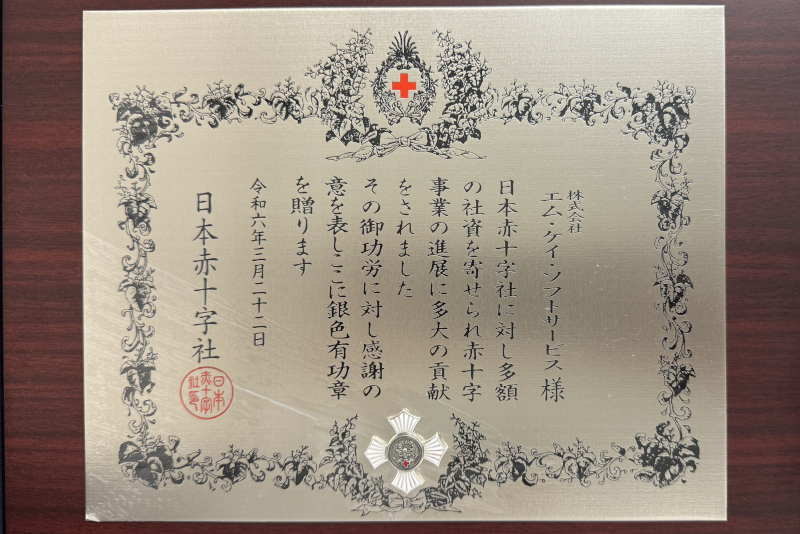 株式会社
エム・ケイ・ソフトサービス 様
日本赤十字社に対し多額
の社資を寄せられ赤十字
事業の進展に多大の貢献
をされました
その御功労に対し感謝の
意を表しここに銀色有功章
を贈ります
令和六年三月二十二日
日本赤十字社
日本
赤十字
社印